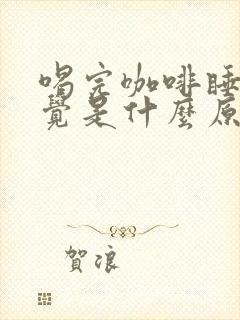 喝完咖啡睡
覺是什麼原
賀浪